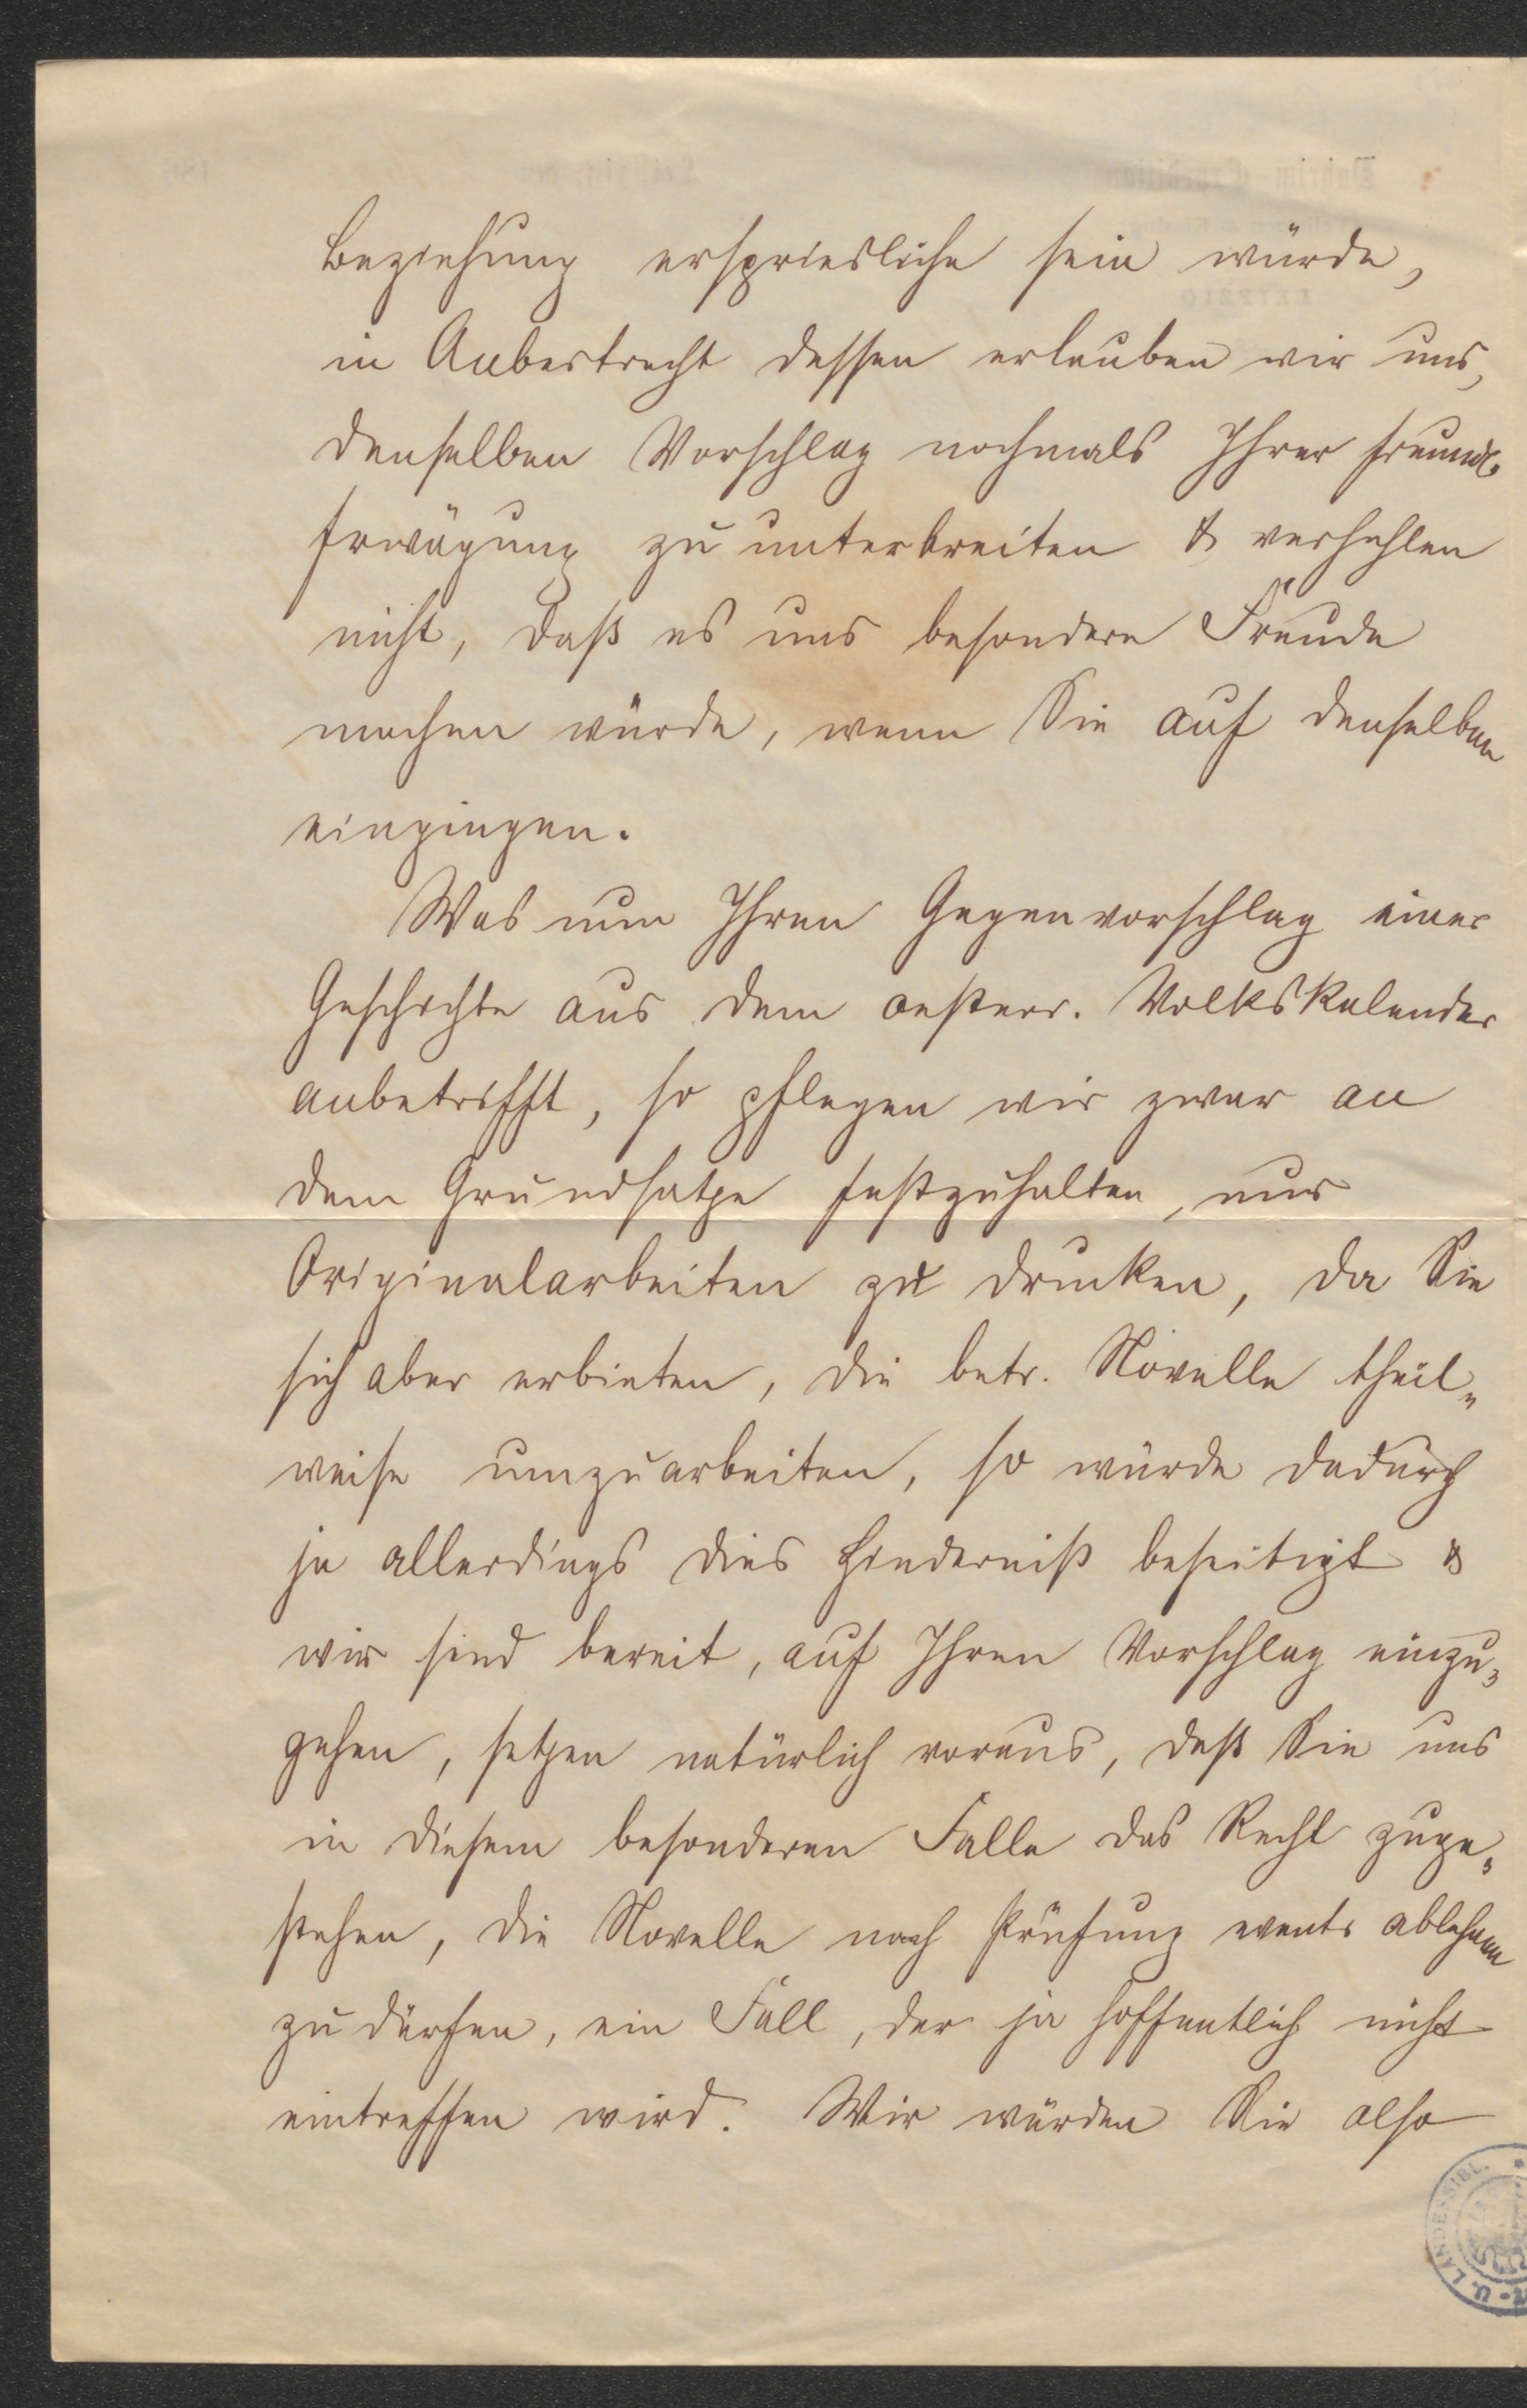 Beziehung erspriesliche sein würde,
in Anbetracht dessen erlauben wir uns,
denselben Vorschlag nochmals Ihrer freundl.
Erwägung zu unterbreiten & verhehlen
nicht, daß es uns besondere Freude
machen würde, wenn Sie auf denselben
eingingen.
Was nun Ihren Gegenvorschlag einer
Geschichte aus dem oesterr. Volkskalender
anbetrifft, so pflegen wir zwar an
dem Grundsatze festzuhalten, nur
Originalarbeiten zu drucken, da Sie
sich aber erbieten, die betr. Novelle theil-
weise umzuarbeiten, so würde dadurch
ja allerdings dies Hinderniß beseitigt &
wir sind bereit, auf Ihren Vorschlag einzu-
gehen, setzen natürlich voraus, daß Sie uns
in diesem besonderen Falle das Recht zuge-
stehen, die Novelle nach Prüfung event. ablehnen
zu dürfen, ein Fall, der ja hoffentlich nicht
eintreffen wird. Wir würden Sie also